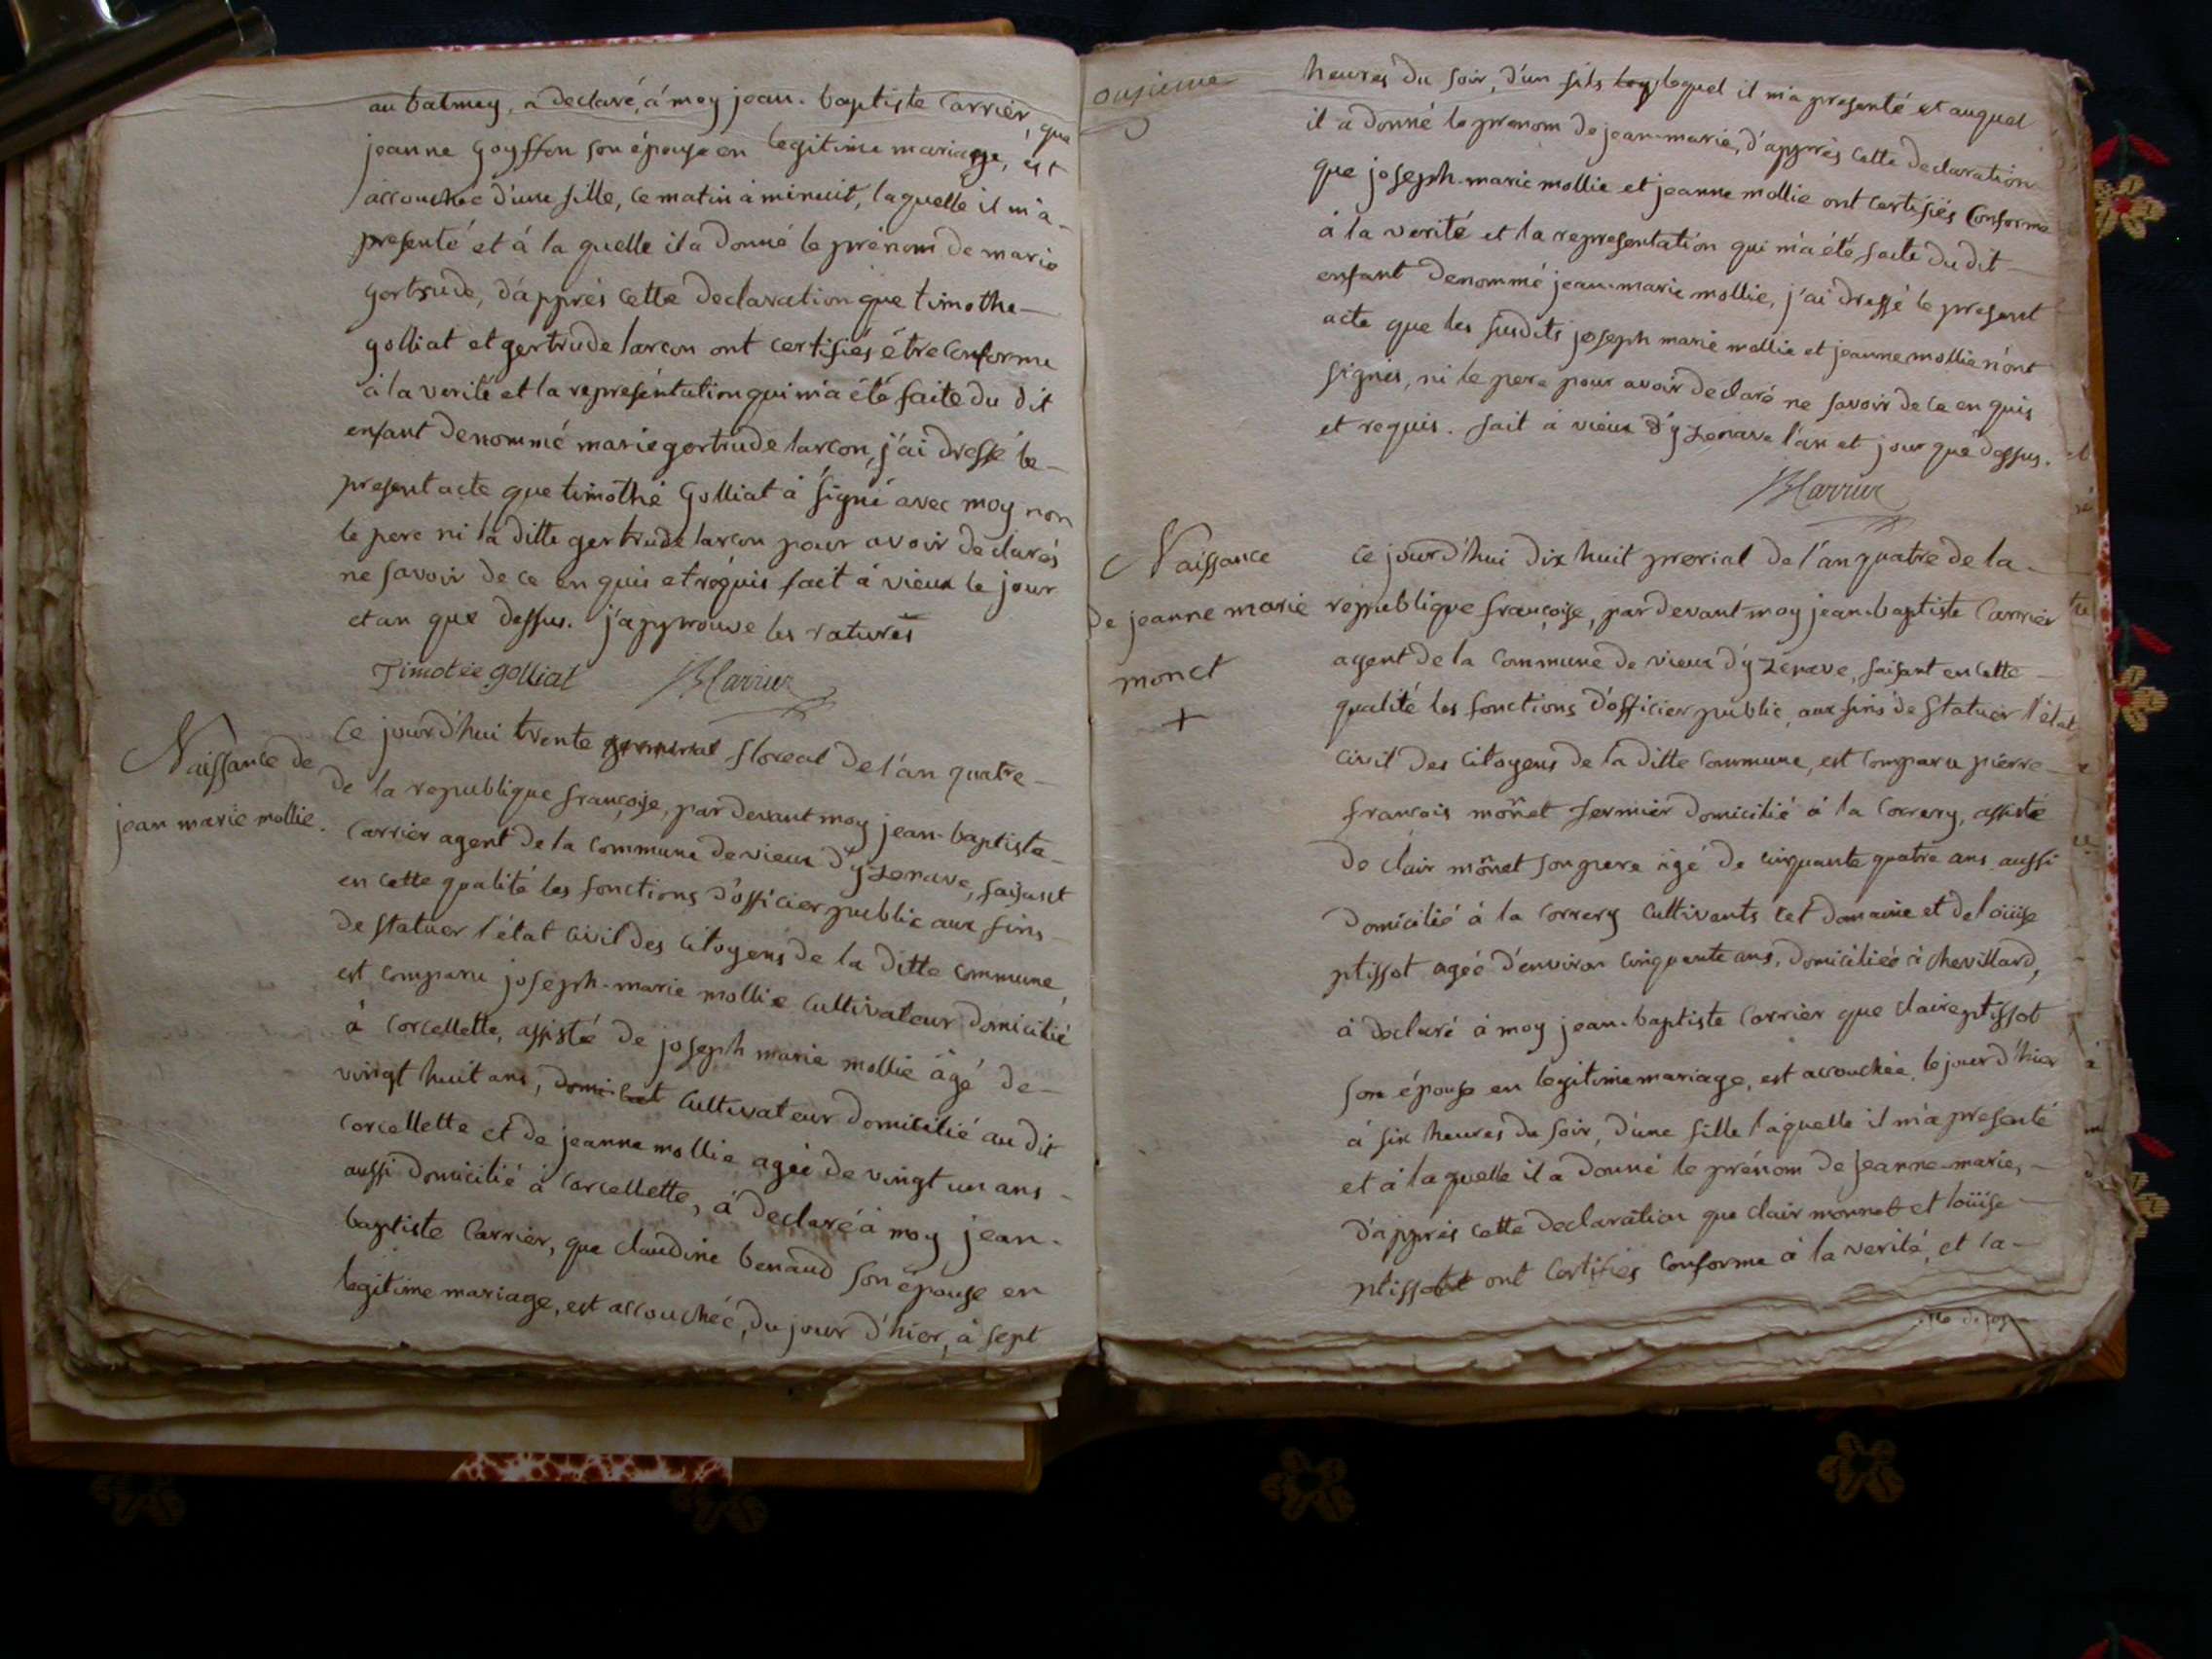 au balmey, a declaré, á moy jean-baptiste Carrier, que
jeanne goyffon son épouse en legitime mariage, est
accouchée d'une fille, ce matin á minuit, laquelle il m'a
presenté et á la quelle il a donné le prénom de marie
gertrude, d'apprés cette declaration que timothe
golliat et gertrude larcon ont certifiés être conforme
á la verité et la représentation qui m'a été faite du dit
enfant denommé marie gertrude larcon, j'ai dressé le
present acte que timothé golliat á signé avec moy non
le pere ni la ditte gertrude larcon pour avoir declarés
ne savoir de ce en quis et réquis fait á vieux le jour
et an que dessus. j'approuve les ratures
Timotée golliat JBCarrier
Naissance de
jean marie mollie.
Ce jourd'hui trente germinal floreal de l'an quatre
de la republique françoise, par devant moy jean-baptiste
Carrier agent de la commune de vieux d'yzenave, faisant
en cette qualité les fonctions d'officier public aux fins
de statuer l'état civil des citoyens de la ditte commune,
est comparu joseph-marie mollie cultivateur domicilié
á corcellette, assisté de joseph marie mollie âgé de
vingt huit ans, cultivateur domicilié au dit
corcellette et de jeanne mollie agée de vingt un ans
aussi domicilié á corcellette, á declaré á moy jean-
baptiste Carrier, que claudine benaud son épouse en
legitime mariage, est accouchée, du jour d'hier, á sept
onzieme
heures du soir, d'un fils lequel il m'a presenté et auquel
il a donné le prenom de jean-marie, d'apprés cette declaration
que joseph-marie mollie et jeanne mollie ont certifiés conforme
á la verité et la representation qui m'a été faite du dit
enfant denommé jean-marie mollie, j'ai dressé le present
acte que les susdits joseph marie mollie et jeanne mollie n'ont
signés, ni le pere pour avoir declaré ne savoir de ce en quis
et requis. fait á vieux d'yzenave l'an et jour que dessus.
JBCarrier
Naissance
de jeanne marie
monet
+
Ce jourd'hui dix huit prerial de l'an quatre de la
republique françoise, par devant moy jean-baptiste Carrier
agent de la commune de vieux d'yzenave, faisant en cette
qualité les fonctions d'officier public, aux fins de statuer l'état
civil des citoyens de la ditte commune, est comparu pierre
françois monet fermier domicilié á la correry, assisté
de clair monet son pere âgé de cinquante quatre ans aussi
domicilié á la correry cultivants cet domaine et de loüise
ptissot agée d'environ cinquante ans, domiciliée á chevillard,
á declaré á moy jean-baptiste Carrier que claire ptissot
son épouse en legitime mariage, est accouchée le jour d'hier
á six heures du soir, d'une fille laquelle il m'a presenté
et á laquelle il a donné le prénom de jeanne-marie,
d'apprés cette declaration que clair monnet et loüise
ptissot ont certifiés conforme á la verité, et la